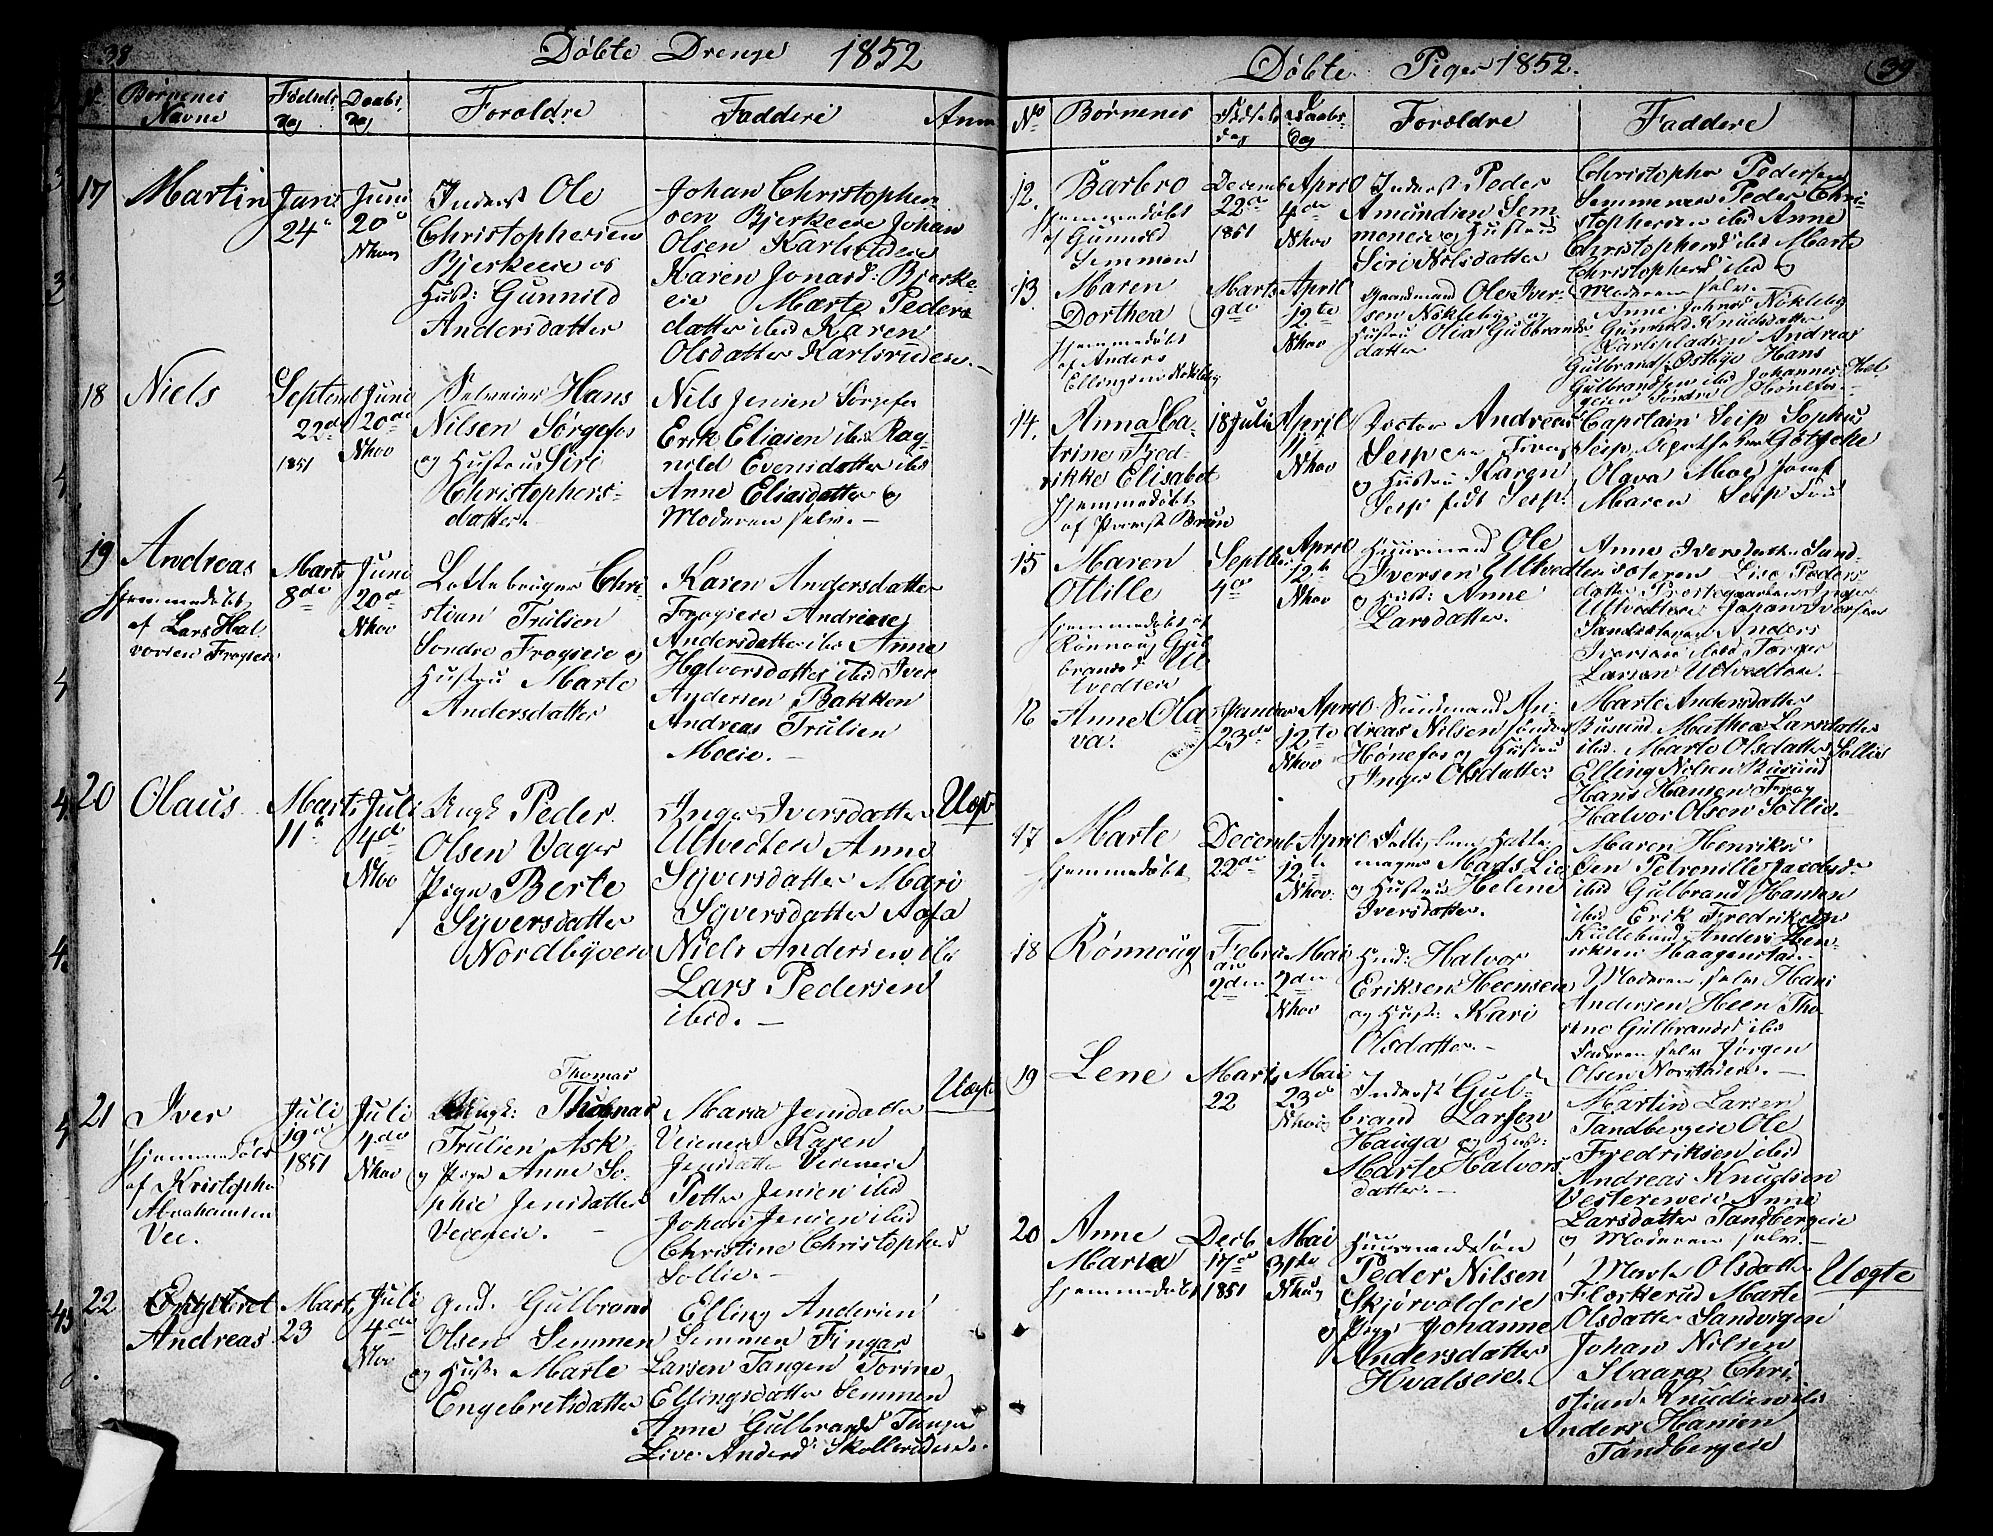 38
Døbte Drenge 1852
Børnenes Navne
Fødsels dag
Daabs dag
Forældre
Faddere
Anm
17
Martin
24
Juni
20
Nhov
Inderst Ole
Christophersen
Bjerkeeie og
Hust: Gunnild
Andersdatter
Johan Christopher
sen Bjerkeeie Johan
Olsen Karlsrudeie
Karen Jonasd: Bjerke
eie Marte Peders
datter ibid Karen
Olsdatter Karlsrudeie.
18
Niels
Septemb
22de
1851
Juni
20de
Nhov
Selveier Hans
Nilsen Sørgefos
og Hustru Siri
Christophers-
datter.
Nils Jensen Sørgefos
Erik Eliasen ibid Rag-
nild Evensdatter ibid
Anne Eliasdatter og
Moderen selv.
19
Andreas
Hjemmedøbt
af Lars Hal
vorsen Frogseie
Marts
8de
Juni
20de
Nhov
Chri-
stian Trulsen
Søndre Frogseie og
Hustru Marte
Andersdatter
Karen Andersdatter
Frogseie
Andersdatter ibid Anne
Halvorsdatter ibid Iver
Andersen Bakken
Andreas Trulsen
Moeie.
20
Olaus
Marts
11
Juli
4de
Nhov
Ungk Peder
Olsen Vager
Pige Berte
Syversdatter
Nordbyeie
Inger Iversdatter
Ultvedten Anne
Syversdatter Mari
Syversdatter Aasa
Niels Andersen ibid
Lars Pedersen
ibid.
Uægte
21
Iver
Hjemmedøbt
af Kristopher
Abrahamsen
Vee.
Juli
19
1851
Juli
4de
Nhov
Thomas
Ungk: Thomas
Trulsen Ask
og Pige Anne So-
phie Jensdatter
Veieneie.
Maria Jensdatter
Veieneie Karen
Jensdatter Veieneie
Petter Jensen ibid
Johan Jensen ibid
Christine Christophersd
Sollie.
Uægte
22
Engebret
Andreas
Marts
23
Juli
4de
Nhov
Ind. Gulbrand
Olsen Semmen
og Hust: Marte
Engebretsdatter
Elling Andersen
Semmen Fingar
Larsen Tangen Torine
Ellingsdatter Semmen
Anne Gulbrandsd Tangen
Live Andersd

Døbte Piger 1852.
39
No
Børnenes
Fødsels dag
Daabs dag
Forældre
Faddere
12.
Barbro
Hjemmedøbt
af Gunnild
Semmen
Decemb
22de
1851
April
4de
Nhov
Inderst Peder
Amundsen Sem-
meneie og Hustru
Siri Nilsdatter
Christopher Pedersen
Semmeneie Peder Chri-
stophersen ibid Anne
Christophersd ibid Marte
Christophersd ibid og
Moderen selv.
13
Maren
Dorthea
Hjemmedøbt
af Anders
Ellingsen Nøkleby
Marts
9de
April
12te
Nhov
Gaardmand Ole Iver-
sen Nøkleby og
Hustru Olia Gulbrands
datter
Anne Johnsd Nøkleby
Gunild Knudsdatter
Andreas
Gulbrands: Østbye Hans
Gulbrandsen ibid Johannes Hel-
gesen Søndre Hønefos.
14.
Anna Ca-
trine Fred-
rikke Elisabet
Hjemmedøbt
af Provst Brun
18 Juli
April
11
Nhov
Doctor Andreas
Seip
og Hustru Karen
Seip født Seip
Capitain Seip Sophus
Seip Götzche
Olava Moe Jomf
Maren Seip Frue
15
Maren
Otille
Hjemmedøbt af
Rønnoug Gul
brandsd Ult
vedteie
Septbr
4de
April
12te
Nhov
Huusmand Ole
Iversen Ultvedteie
og Hust: Anne
Larsdatter.
Anne Iversdatter Sand-
Lise Peders
datter
Ultvedteie Johan Iversen
Anders
Iversen ibid Torger
Larsen Ultvedteie.
16
Anne Ola
va.
Januar
23de
April
12te
Nhov
An-
dreas Nilsen Søndre
Hønefos og Hustru
Inger Olsdatter
Marte Andersdatter
Busund Mathea Larsdatter
ibid. Marte Olsdatter Sollie
Elling Nilsen Busund
Hans Hansen Frog
Halvor Olsen Sollie.
17
Marte
Hjemmedøbt
Decemb
22de
April
12te
Nhov.
Hatte-
mager Mads Lie
og Hustru Helene
Iversdatter.
Maren Henriks
Petronille Jacobsd
ibid Gulbrand Hansen
ibid Erik Fredriksen
Anders Hen-
riksen Haagenstad.
18
Rønnoug
Febru
ar
2den
Mai
2den
Nhov
Ind: Halvor
Eriksen Heenseie
og Hust: Kari
Olsdatter.
Moderen selv Hans
Andersen Heen Tho-
rine Gulbrandsd ibid
Faderen selv Jørgen
Olsen
19
Lene
Marts
22
Mai
23de
Nhov
Inderst Gul-
brand Larsen
Hauga og Hust:
Marte Halvors
datter.
Martin Larsen
Tandbergeie Ole
Fredriksen ibid
Andreas Knudsen
Vesterneie Anne
Larsdatter Tandbergeie
og Moderen selv.
20
Anne
Maria
Hjemmedøbt
Decb
17de
1851
Mai
31te
Nhov
Huusmandssøn
Peder Nilsen
Skjørvoldeie
og Pige Johanne
Andersdatter
Hvalseie.
Marte Olsdatter
Flaskerud Marte
Olsdatter Sandvigen
Johan Nilsen
Skaarg Chri
stian Knudsen ibid
Anders Hansen
Tandbergeie
Uægte